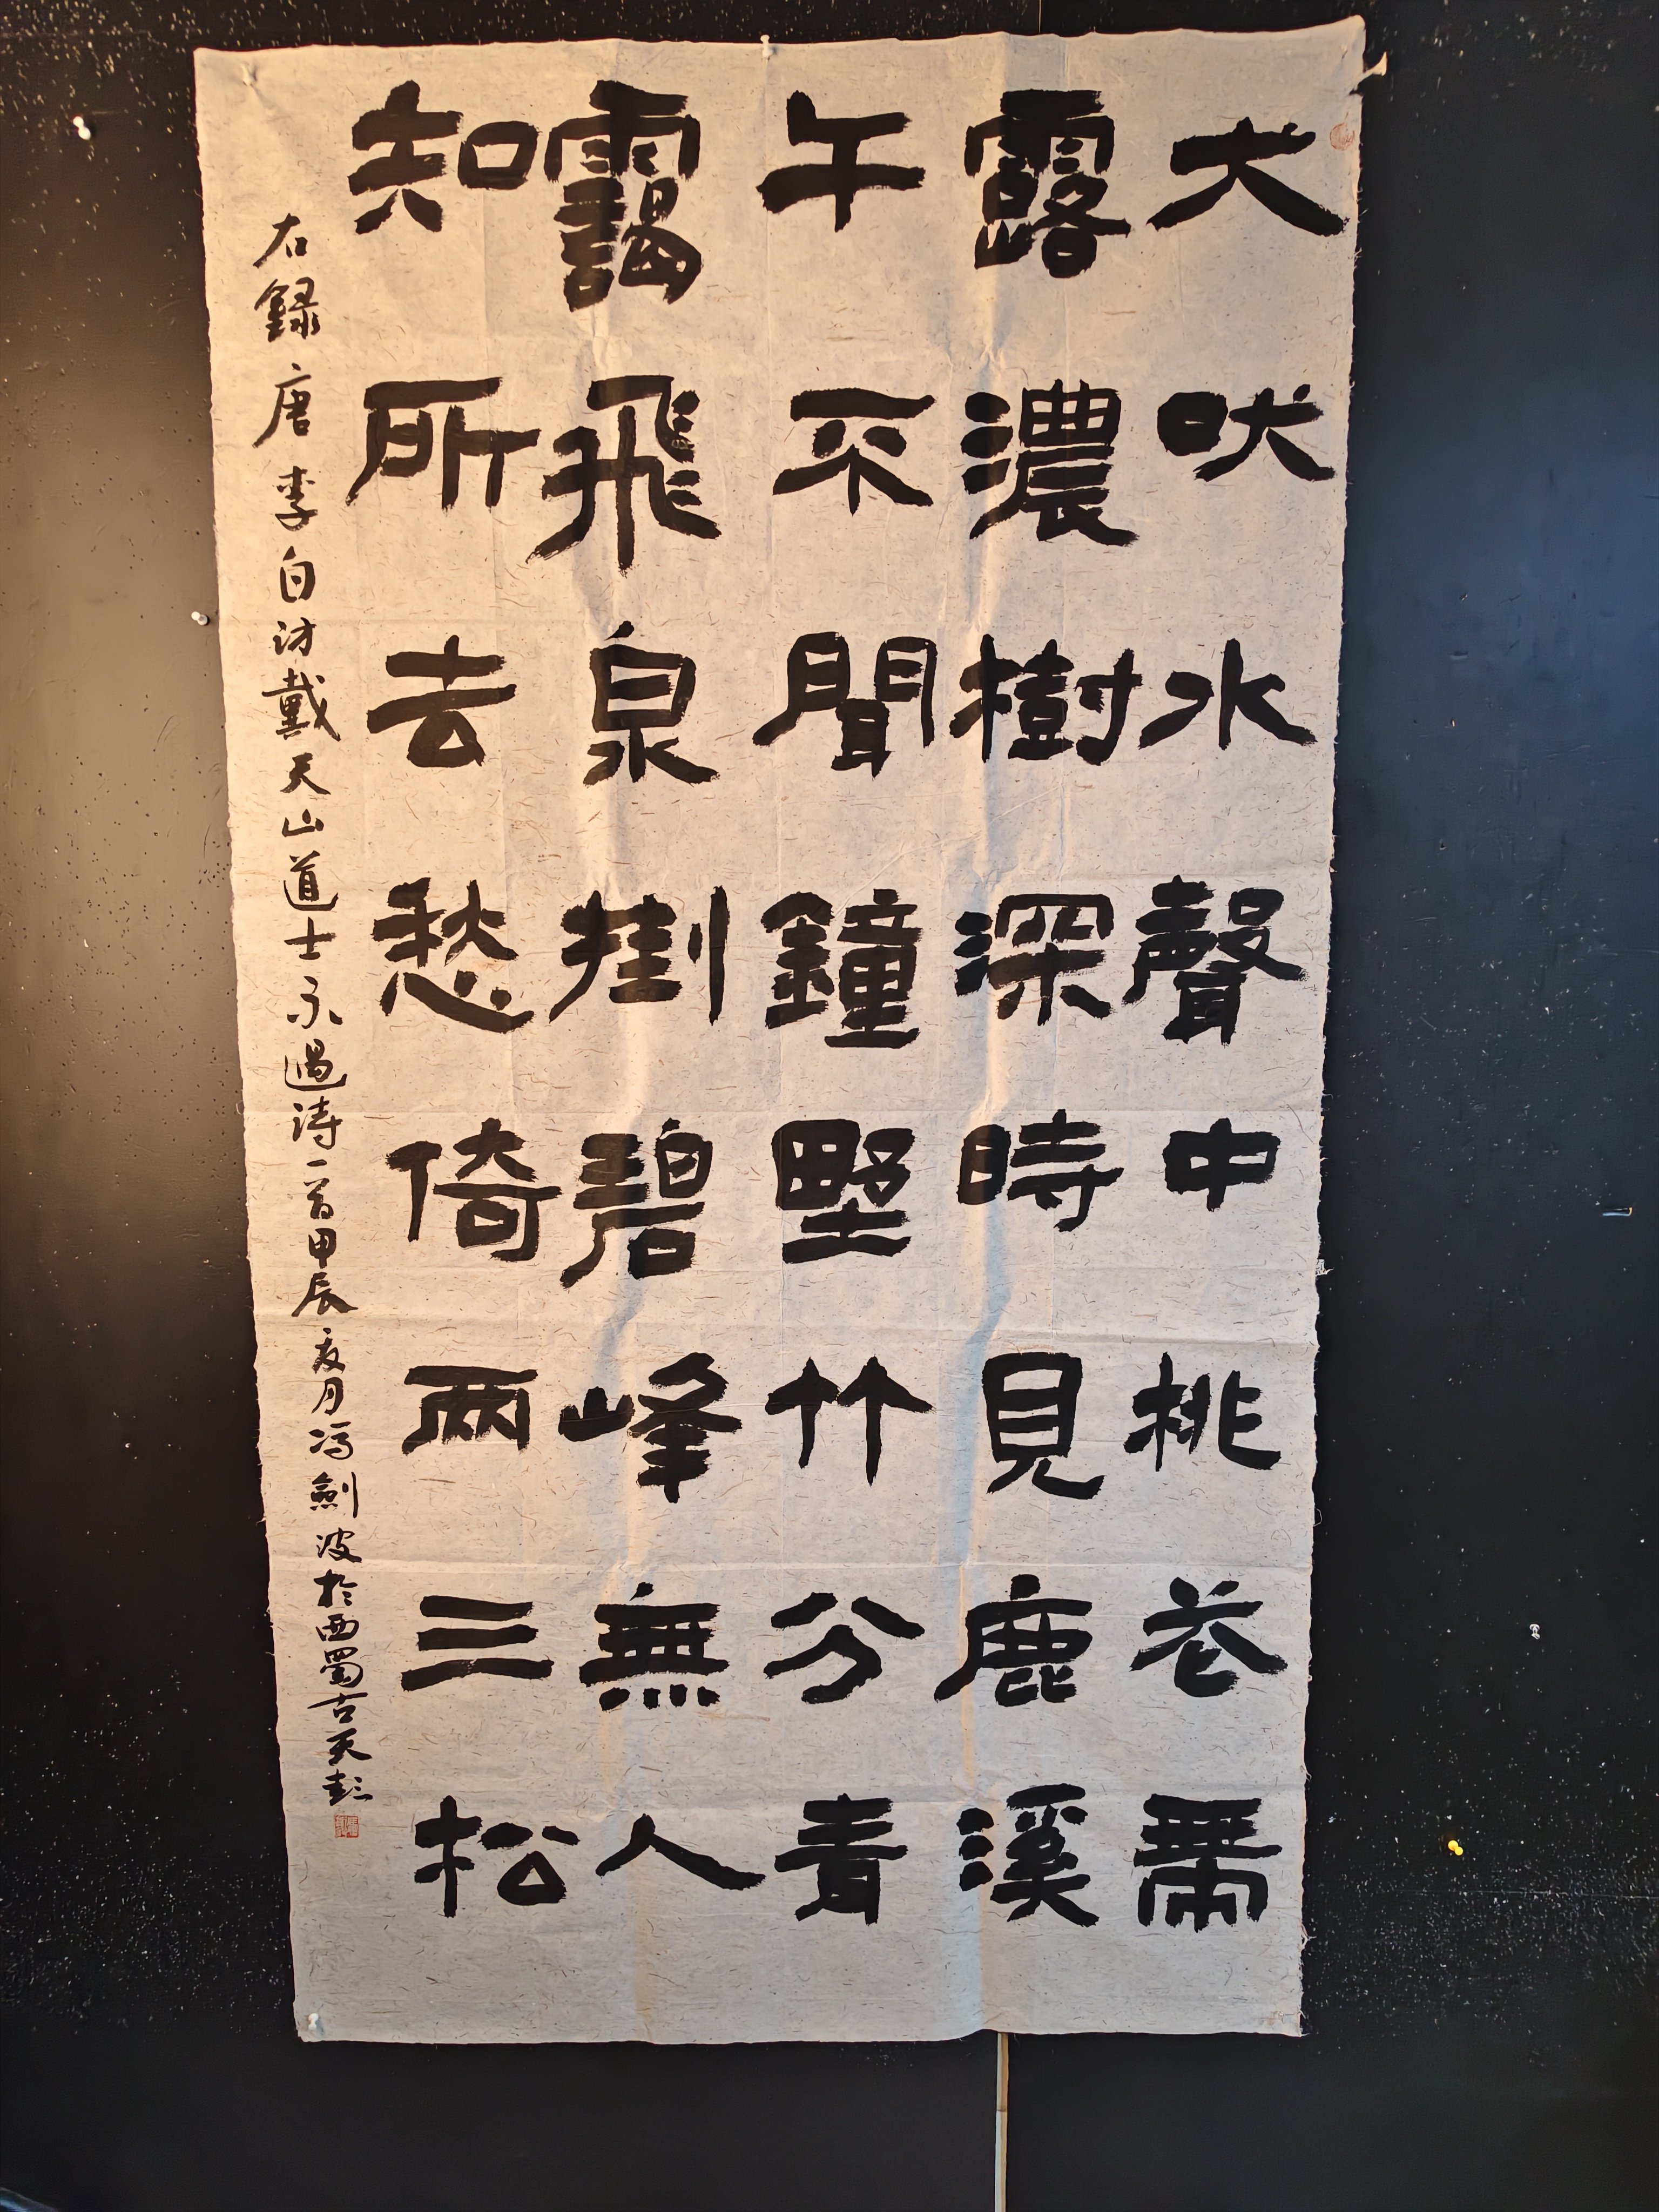 犬吠水聲中桃花帶
露濃樹深時見鹿溪
午不聞鐘野竹分青
靄飛泉掛碧峰無人
知所去愁倚兩三松
右錄唐李白訪戴天山道士不遇詩一首甲辰夏月馮劍波於西蜀古天彭